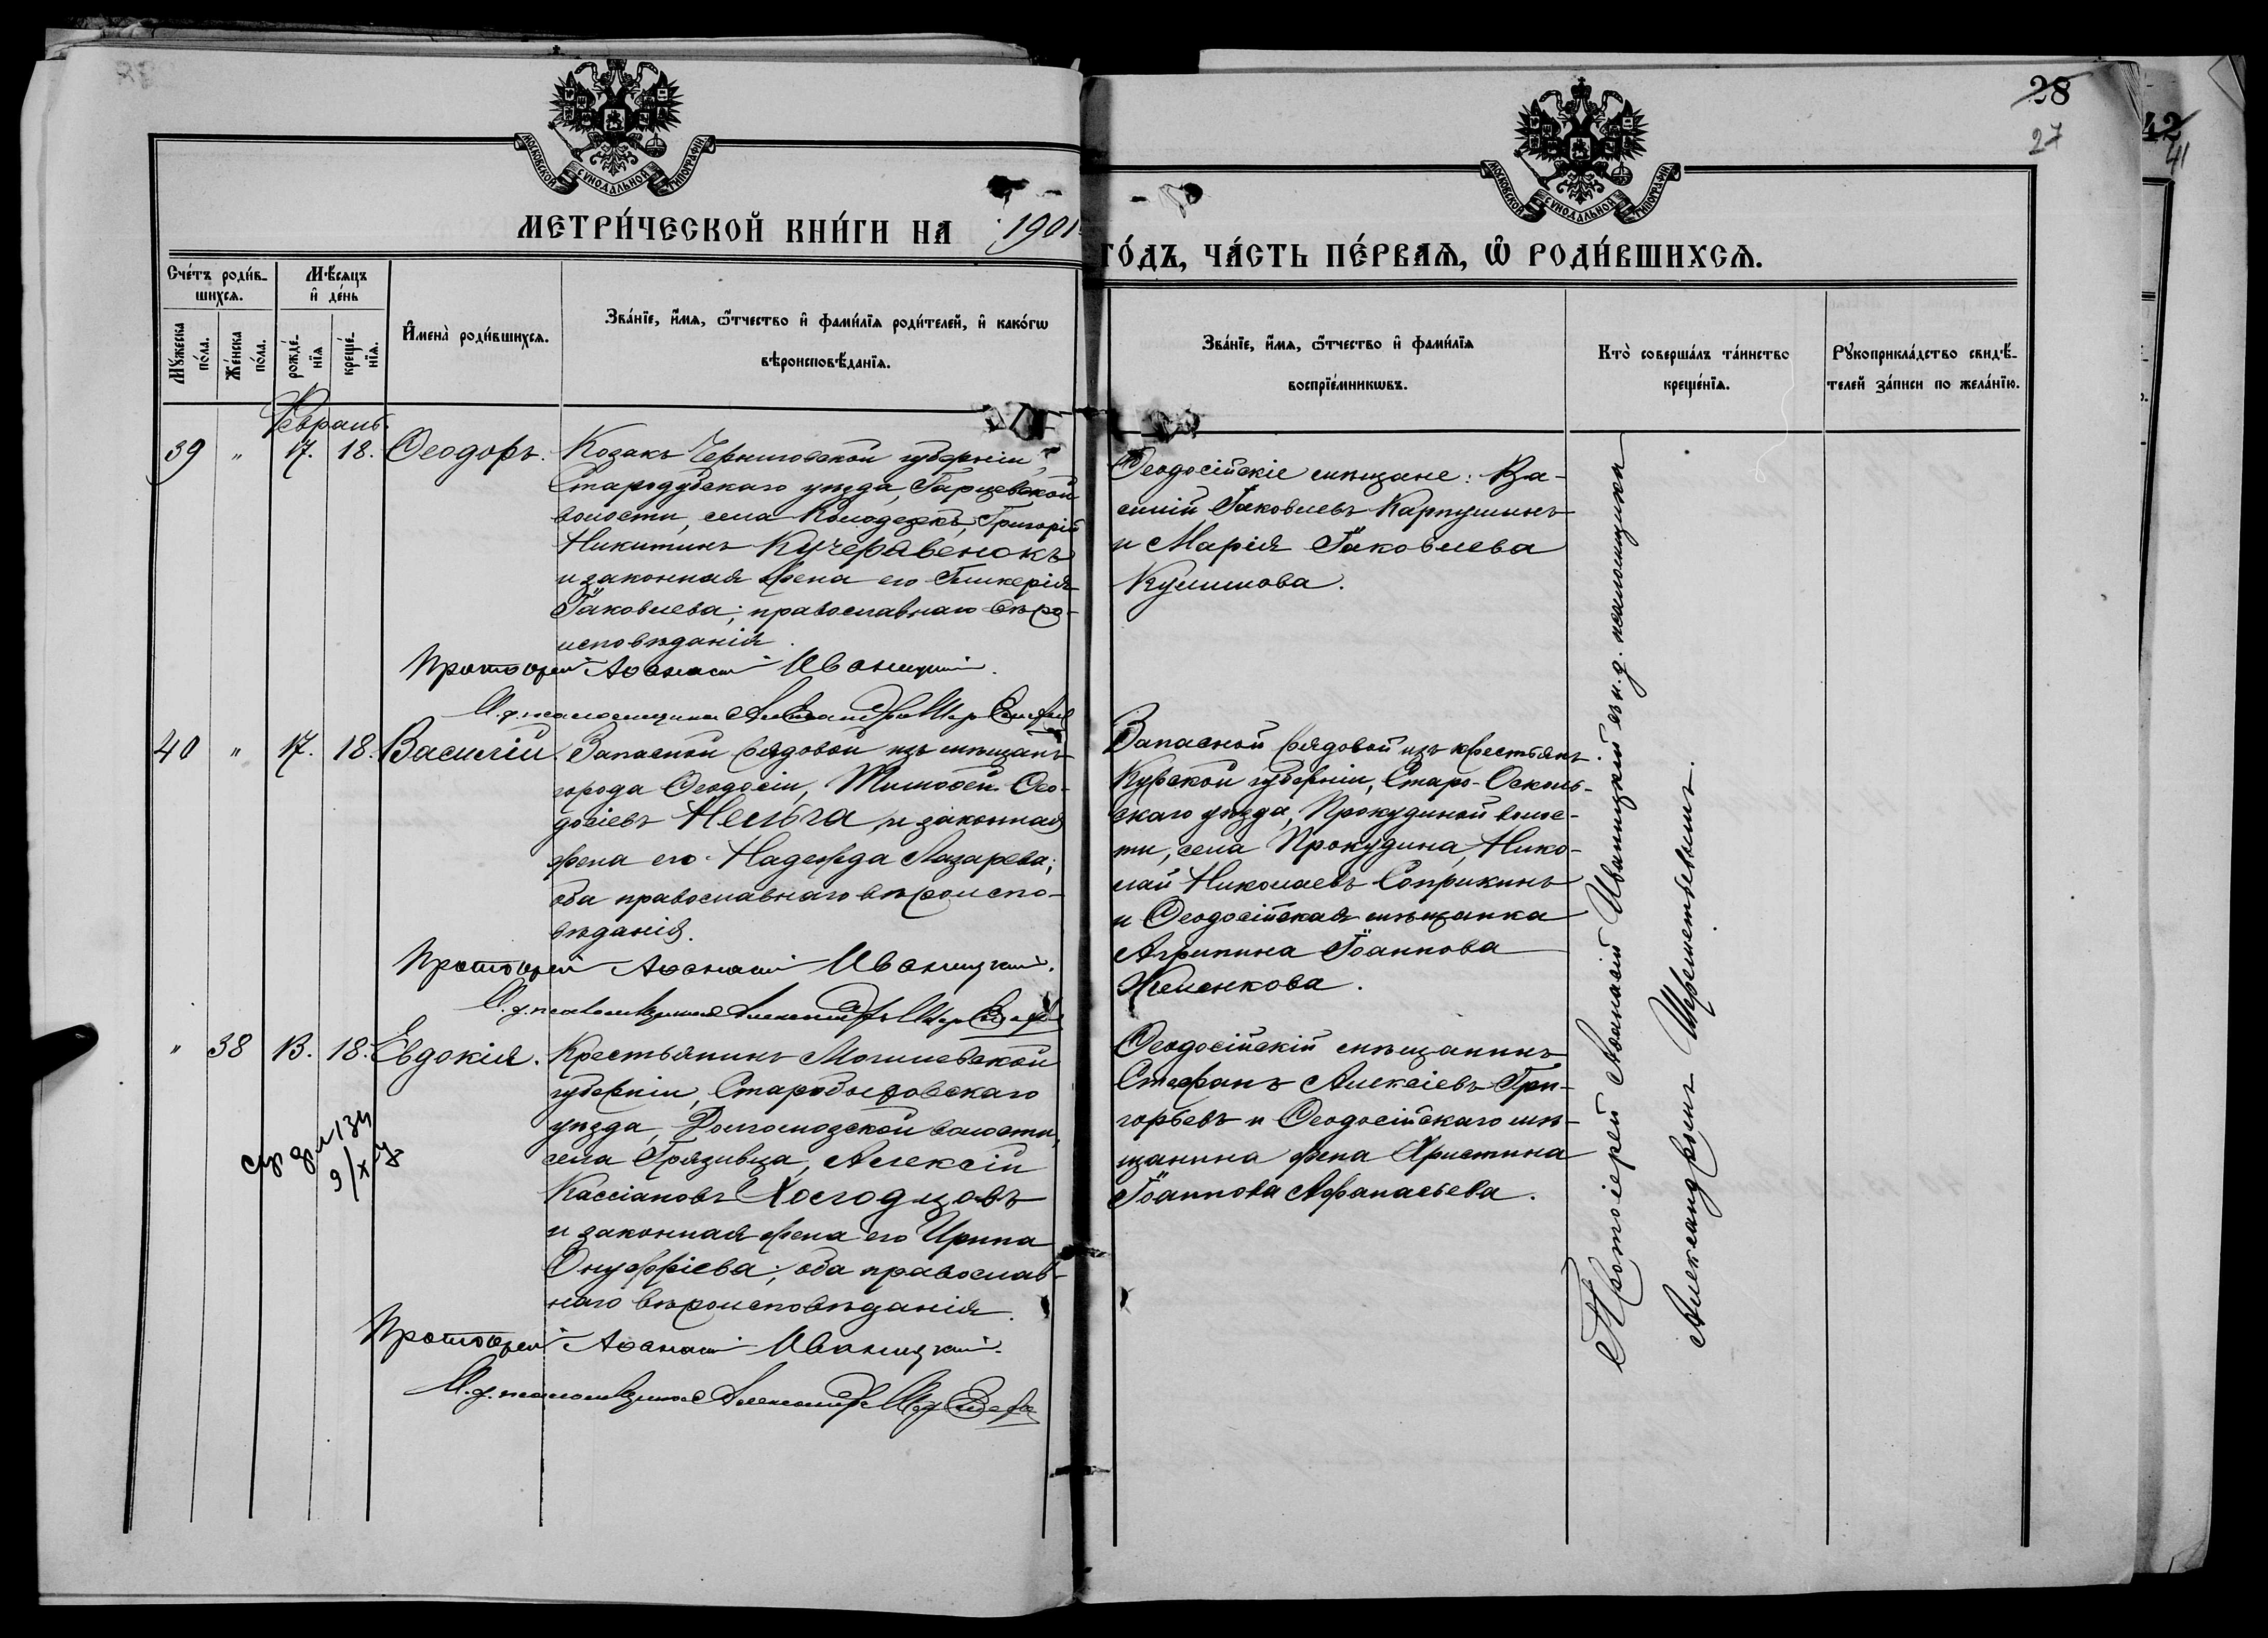 28
27
42
41
МОСКОВСКОЙ СѴНОДАЛЬНОЙ ТИПОГРАФІИ
МОСКОВСКОЙ СѴНОДАЛЬНОЙ ТИПОГРАФІИ
МЕТРИ́ЧЕСКОЙ КНИ́ГИ НА 1901
ГО́ДЪ, ЧА́СТЬ ПЕ́РВАѦ, Ѡ҆ РОДИ́ВШИХСѦ.
Сче́тъ роди́в-
шихсѧ.
Мꙋ́жеска
по́ла.
Же́нска
по́ла.
Мѣ́сѧцъ
и҆ де́нь
рожде́-
нїѧ
креще́-
нїѧ.
И҆мена̀ роди́вшихсѧ.
Зва́нїе, и҆́мѧ, ѻ҆́тчество и҆ фами́лїѧ роди́телей, и҆ како́гѡ
вѣроисповѣ́данїѧ.
Зва́нїе, и҆́мѧ, ѻ҆́тчество и҆ фами́лїѧ
воспрїе́мникѡвъ.
Кто̀ соверша́лъ та́инство
креще́нїѧ.
Рꙋкоприкла́дство свидѣ́-
телей за́писи по жела́нїю.
Февраль
39 " 17. 18. Ѳеодоръ.
Козакъ Черниговской губерніи,
Стародубскаго уѣзда, Гарцевской
волости, села Колодезкъ, Григорій
Никитинъ Кучерявенокъ
и законная жена его Гликерія
Іаковлева; православнаго вѣро-
исповѣданія.
Протоіерей Аѳанасій Иваницкій.
И. д. псаломщика Александръ
Ѳеодосійскіе мѣщане: Ва-
силій Іаковлевъ Карпушинъ
и Марія Іаковлева
Куликова.
40 " 17. 18. Василій.
Запасной рядовой изъ мѣщанъ
города Ѳеодосіи, Тимоѳей Ѳео-
досіевъ Нельга и законная
жена его Надежда Лазарева;
оба православнаго вѣроиспо-
вѣданія.
Протоіерей Аѳанасій Иваницкій.
И. д. псаломщика Александръ
Запасной рядовой изъ крестьянъ
Курской губерніи, Старо-Осколь-
скаго уѣзда, Прокудиной волос-
ти, села Прокудина, Нико-
лай Николаевъ Соприкинъ
и Ѳеодосійская мѣщанка
Агрипина Іоаннова
Жменкова.
" 38 13. 18. Евдокія.
Крестьянинъ Могилевской
губерніи, Старобыховскаго
уѣзда, Долгомозской волости,
села Грязивца, Алексій
Кассіановъ Холодцовъ
и законная жена его Ирина
Онуфріева; оба православ-
наго вѣроисповѣданія.
Протоіерей Аѳанасій Иваницкій.
И. д. псаломщика Александръ
Ѳеодосійскій мѣщанинъ
Стефанъ Алексіевъ Гри-
горьевъ и Ѳеодосійскаго мѣ-
щанина жена Христина
Іоаннова Афанасьева.
Протоіерей Аѳанасій Иваницкій съ и. д. псаломщика
Александромъ Шереметьевымъ.